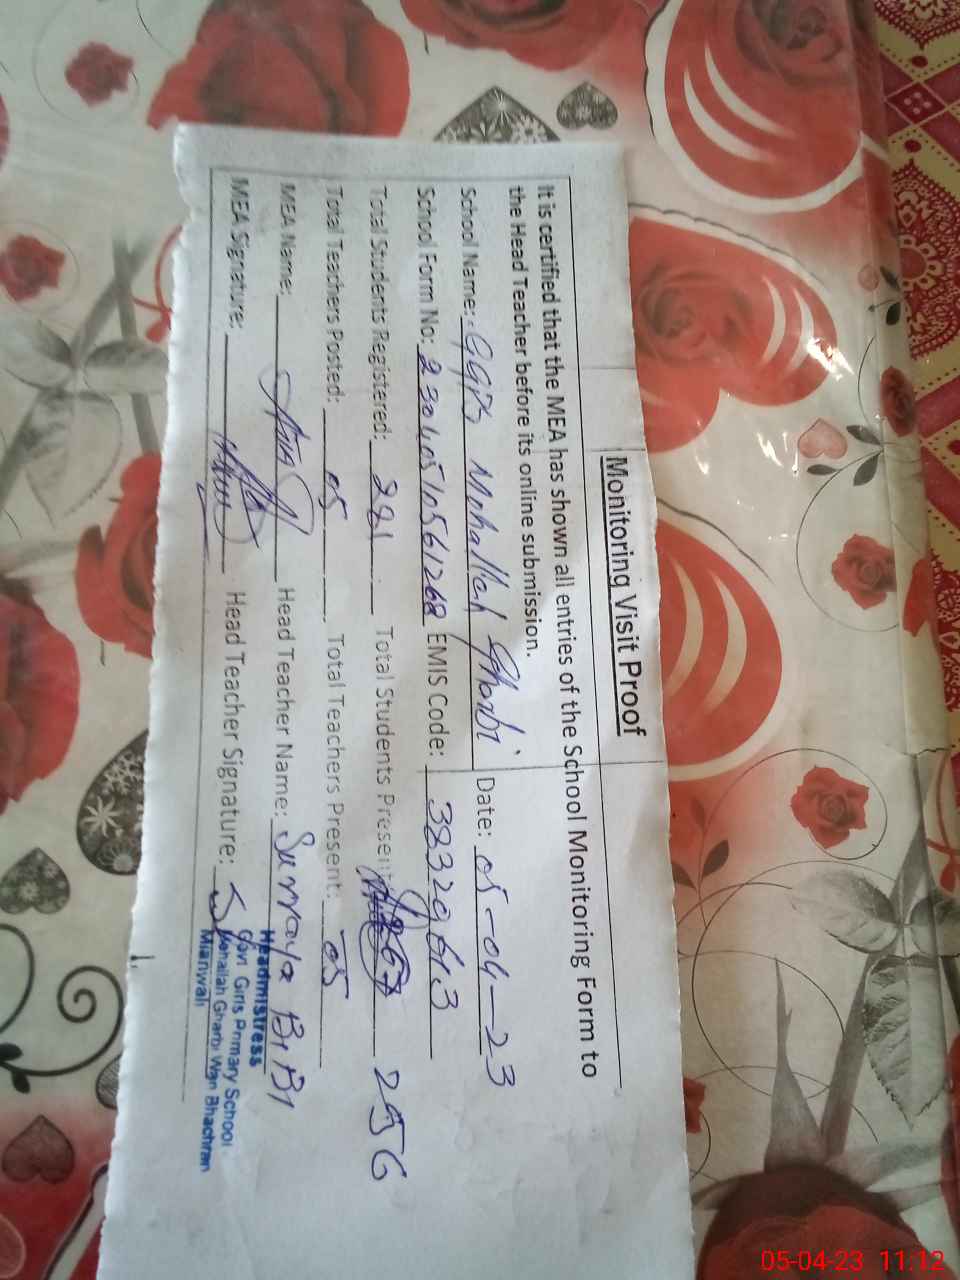 Monitoring Visit Proof
It is certified that the MEA has shown all entries of the School Monitoring Form to
the Head Teacher before its online submission.
School Name: GGPS Mohallah Gharbi Date: 05-04-23
School Form No: 23040510561268 EMIS Code: 38320613
Total Students Registered: 281 Total Students Present: 256
Total Teachers Posted: 05 Total Teachers Present: 05
MEA Name: Head Teacher Name: Surraya BiBi
MEA Signature: Head Teacher Signature:
Headmistress
Govt Girls Primary School
Mohallah Gharbi Wan Bhachran
Mianwali
05-04-23 11:12